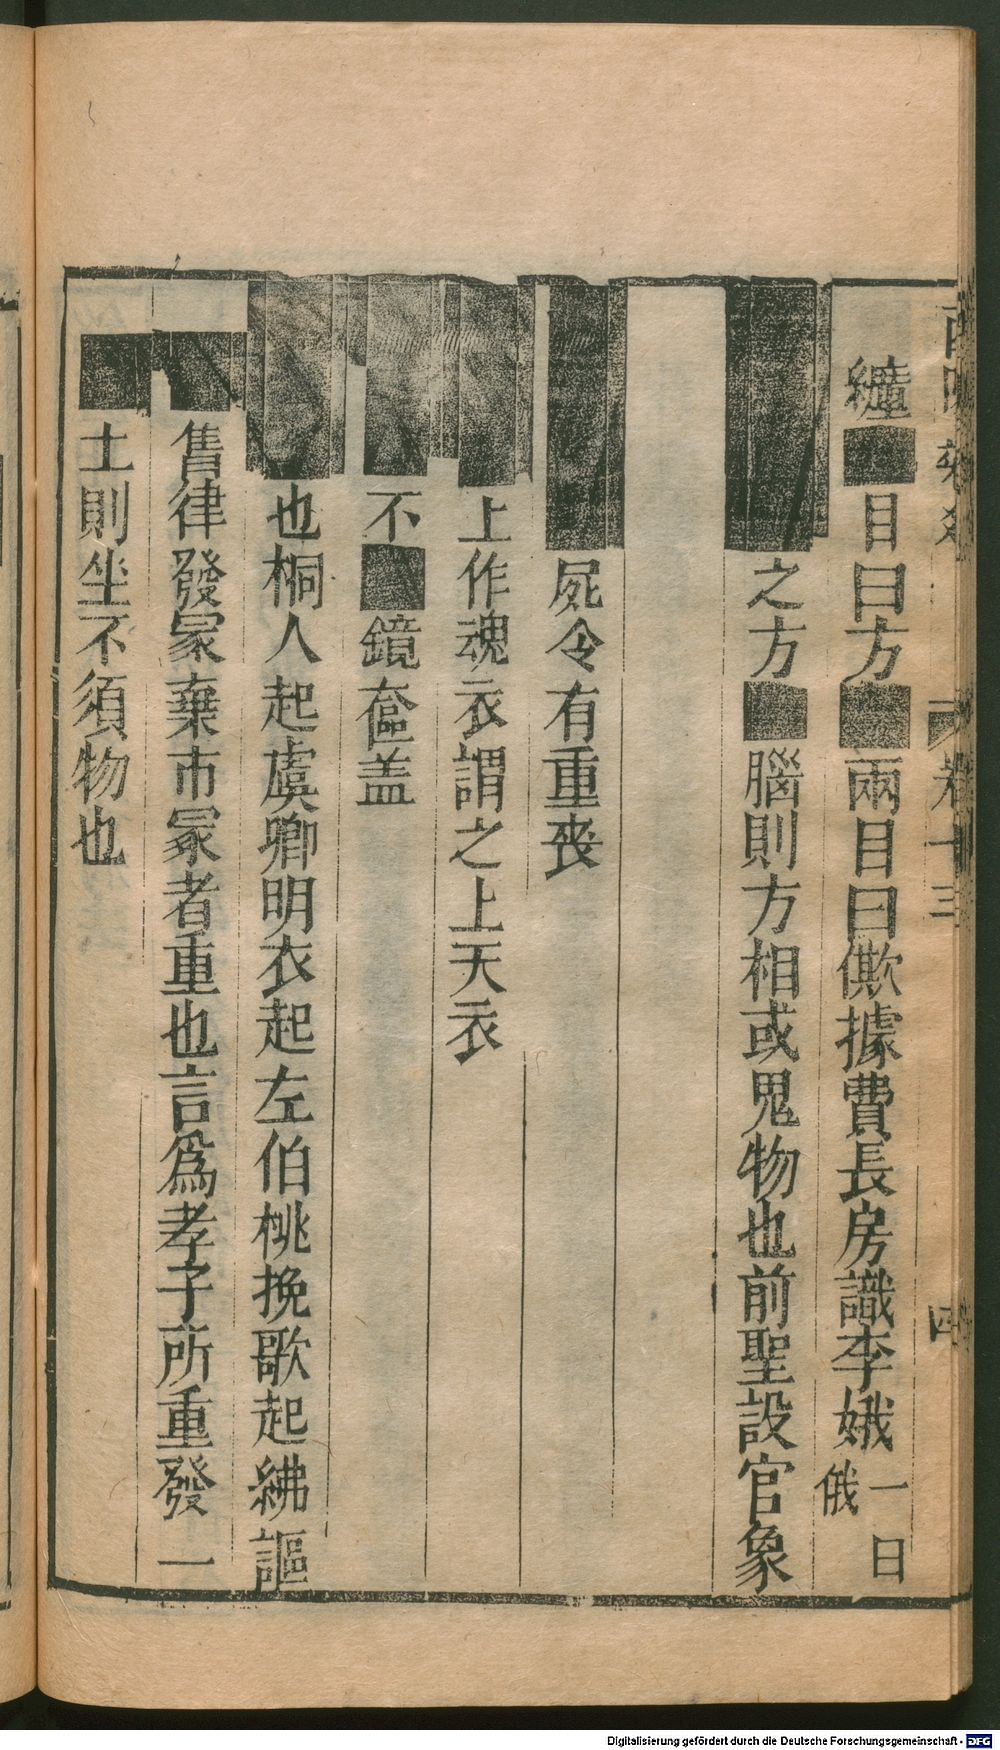 纏■目曰方■兩目曰僛據費長房識李娥一日俄
之方■腦則方相或鬼物也前聖設官象
屍令有重喪
上作魂衣謂之上天衣
不■鏡奩盖
也桐人起虞卿明衣起左伯桃挽歌起紼謳
舊律發冢棄市冢者重也言爲孝子所重發一
土則坐不須物也
卷十三
四
Digitalisierung gefördert durch die Deutsche Forschungsgemeinschaft - DFG